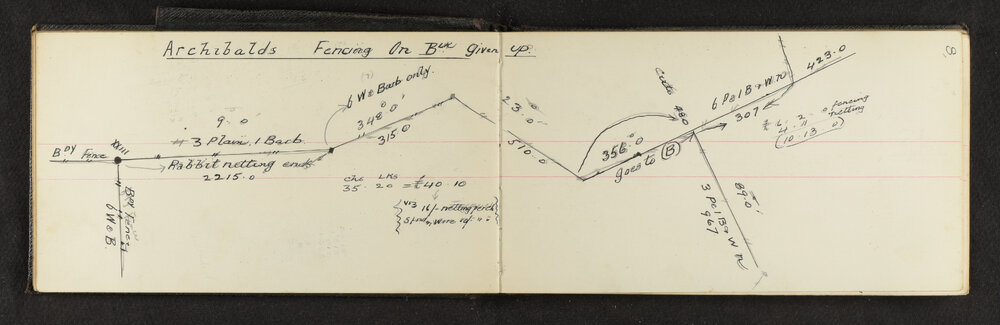 Archibalds Fencing On Blk Given up.
8.
6 W & Barb only.
9. 0
3 Plain, 1 Barb.
348.0
315.0
XXIII
Bdy Fence
Rabbit netting ends
2215.0
Bdy Fence
6 W & B.
chs Lks
35. 20 = £40. 10
23.0
510.0
Cuts 480
356.0
goes to B
6 Pl 1 B & W N
423.0
307
£6. 2. 0 fencing
4. 11 netting
10. 13 0
89.0
3 Pl 1 B & W N
967